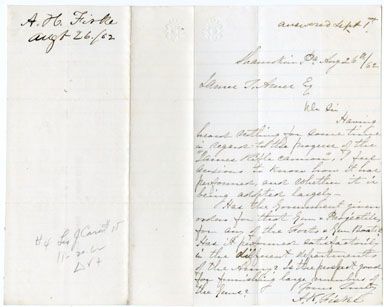 A. H. Fiske
Augt 26./62
answered Sept
Shamokin Pa Aug 26th/62
James T. Ames Esq
Dr Sir
Having
heard nothing for some time
in regard to the progress of the
"James Rifle Cannon," I feel
anxious to know how it has
performed and whether it is
being adopted largely.
Has the Government given
orders for that Gun & Projectile
for any of the Forts or Gun Boats?
Has it performed satisfactorily
in the different departments
of the Army? Is the prospect good
for furnishing large numbers of
the Guns?
Yours Truly
A. H. Fiske